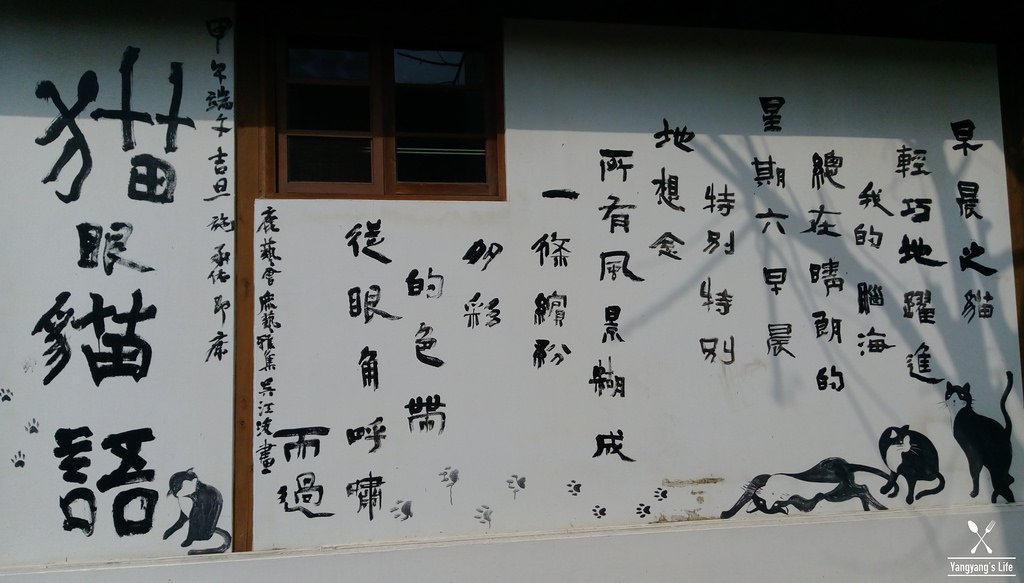 早晨之貓
輕巧地躍進
我的腦海
總在晴朗的
星期六早晨
特別特別
地想念
所有風景糊成
一條繽紛
多彩
的色帶
從眼角呼嘯
而過
鹿藝會鹿藝雅集吳江畫
甲午端午吉旦 承即席
猫眼貓語
Yangyang's Life